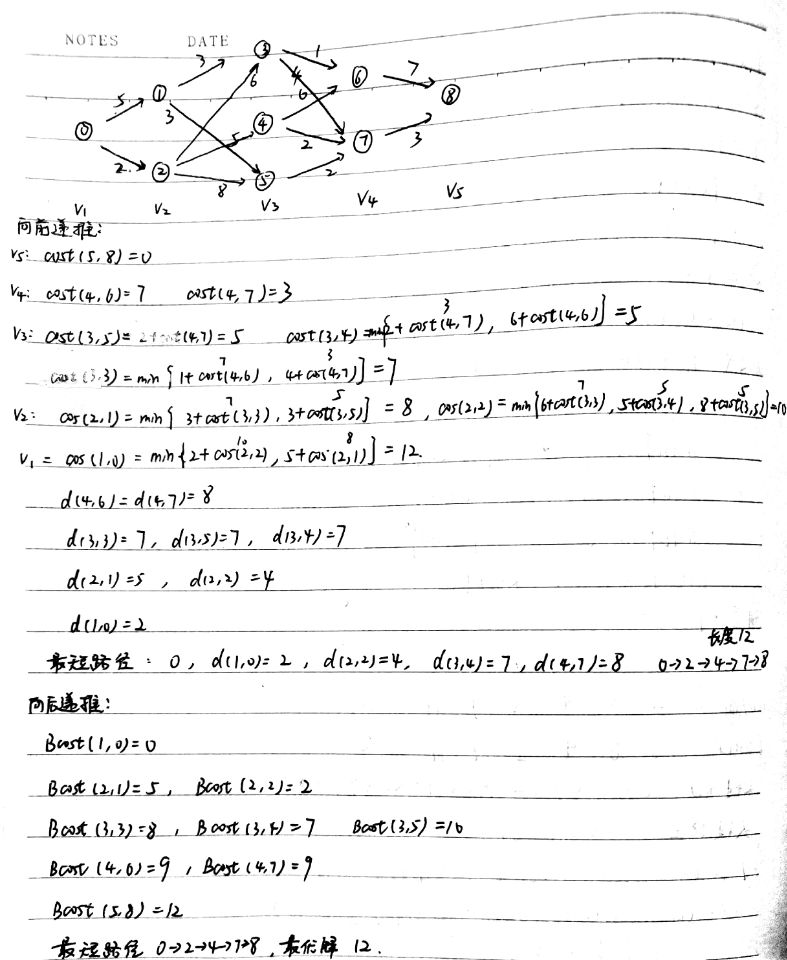 NOTES DATE
③ 1
3 ⑥ 7
① 4 ⑧
5 6 6
3 ④
⓪ 5 2 ⑦ 3
2 ② 8 ⑤ 2
V₁ V₂ V₃ V₄ V₅
向前递推:
V5: cost(5,8)=0
V4: cost(4,6)=7 cost(4,7)=3
V3: cost(3,5)=2+cost(4,7)=5 cost(3,4)=min{2+cost(4,7), 6+cost(4,6)}=5
3
cost(3,3)=min{1+cost(4,6), 4+cos(4,7)}=7
7 3
V2: cos(2,1)=min{3+cost(3,3), 3+cost(3,5)}=8, cos(2,2)=min{6+cost(3,3), 5+cos(3,4), 8+cost(3,5)}=10
7 5 7 5 5
V₁= cos(1,0)=min{2+cos(2,2), 5+cos(2,1)}=12.
10 8
d(4,6)=d(4,7)=8
d(3,3)=7, d(3,5)=7, d(3,4)=7
d(2,1)=5, d(2,2)=4
d(1,0)=2
长度12
最短路径: 0, d(1,0)=2, d(2,2)=4, d(3,4)=7, d(4,7)=8 0→2→4→7→8
向后递推:
Bcost(1,0)=0
Bcost(2,1)=5, Bcost(2,2)=2
Bcost(3,3)=8, Bcost(3,4)=7 Bcost(3,5)=10
Bcost(4,6)=9, Bcost(4,7)=9
Bcost(5,8)=12
最短路径 0→2→4→7→8, 最优解 12.